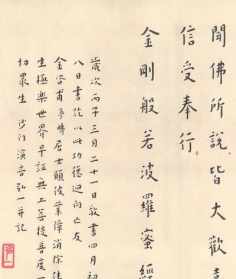 聞佛所說皆大歡喜
信受奉行
金剛般若波羅蜜經
歲次丙子三月二十一日敬書四月初
八日書訖以此功德迴向亡友
金咨甫夢疇居士願彼業障消除往
生極樂世界早證無上菩提普度一
切眾生 沙門演音弘一并記